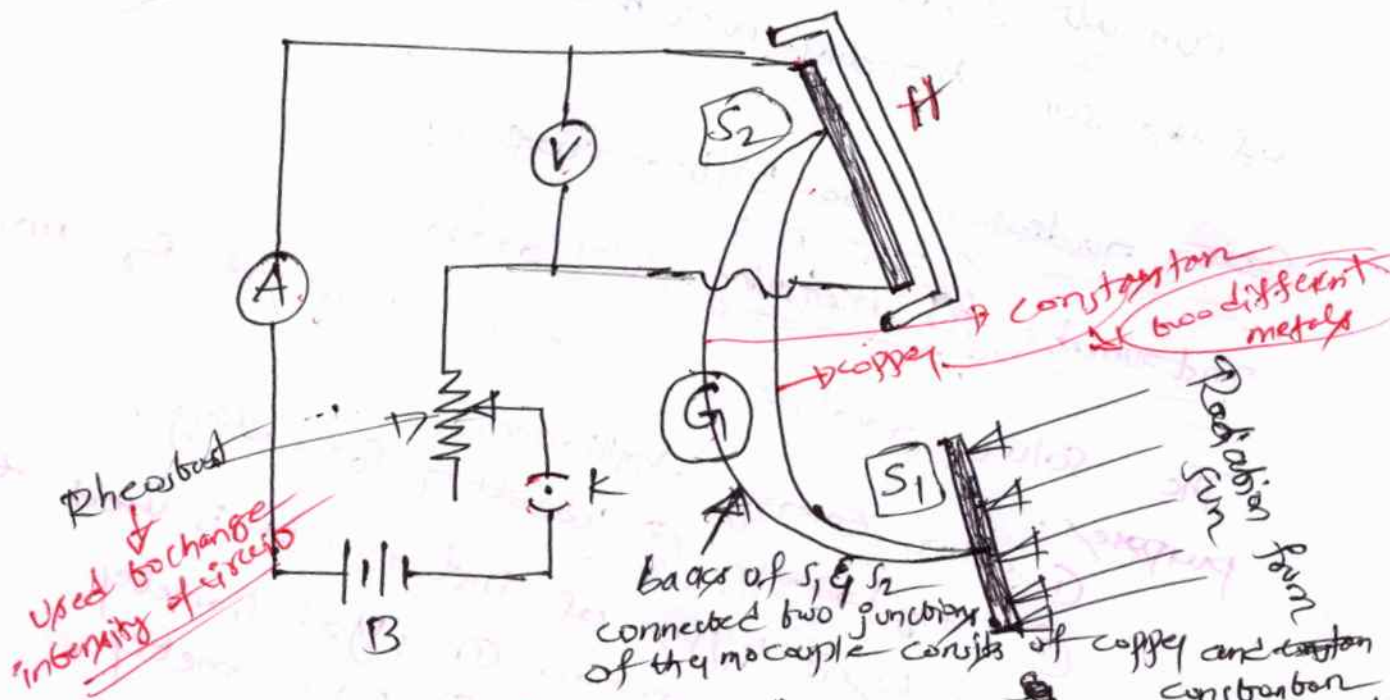 S2
H
V
A
constantan
copper
two different
metals
G
S1
Radiation from
sun
Rheostat
used to change
intensity of circuit
K
B
backs of S1 & S2
connected two junctions
of thermocouple consists of copper and
constantan